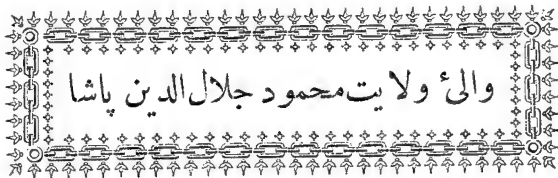 والئ ولايت محمود جلال الدين پاشا